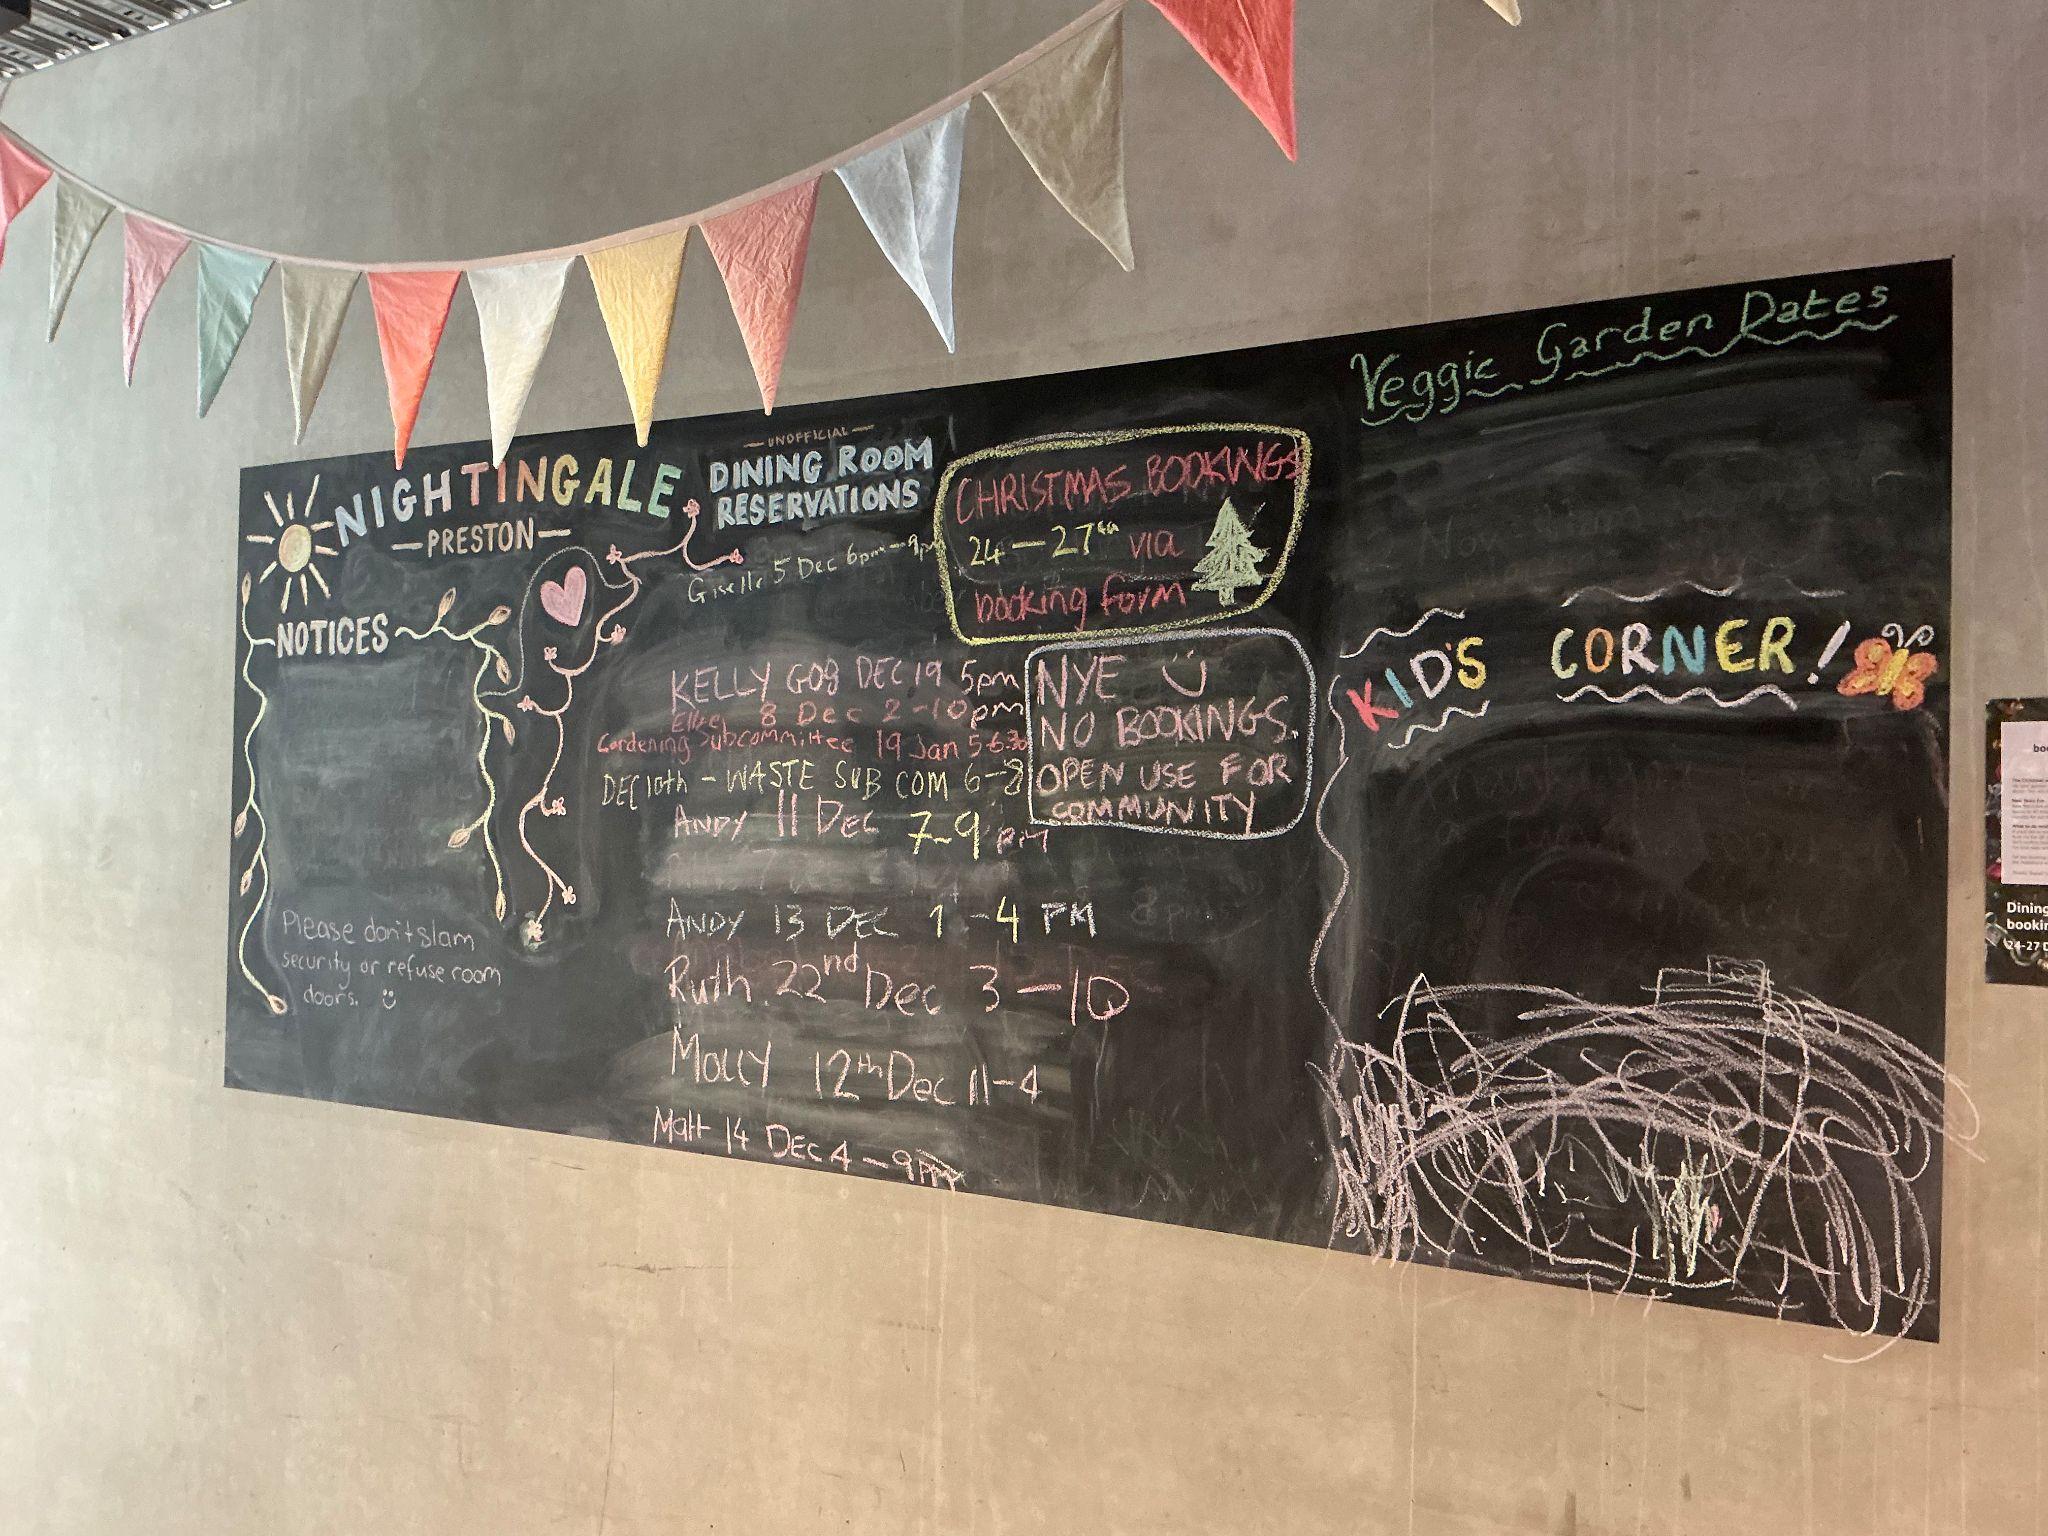 NIGHTINGALE
PRESTON
NOTICES
Please don't slam
security or refuse room
doors.
UNOFFICIAL
DINING ROOM
RESERVATIONS
Giselle 5 Dec 6pm-9pm
KELLY G08 DEC 19 5pm
8 Dec 2-10pm
Gardening Subcommittee 19 Jan 5-6.30
DEC 10th - WASTE SUB COM 6-8
ANDY 11 DEC 7-9 PM
ANDY 13 DEC 1-4 PM
Ruth 22nd Dec 3-10
MOLLY 12th Dec 11-4
Matt 14 DEC 4-9pm
CHRISTMAS BOOKINGS
24-27th via
booking form
NYE
NO BOOKINGS.
OPEN USE FOR
COMMUNITY
Veggie Garden Dates
KID'S CORNER!
Dining
bookin
24-27 D